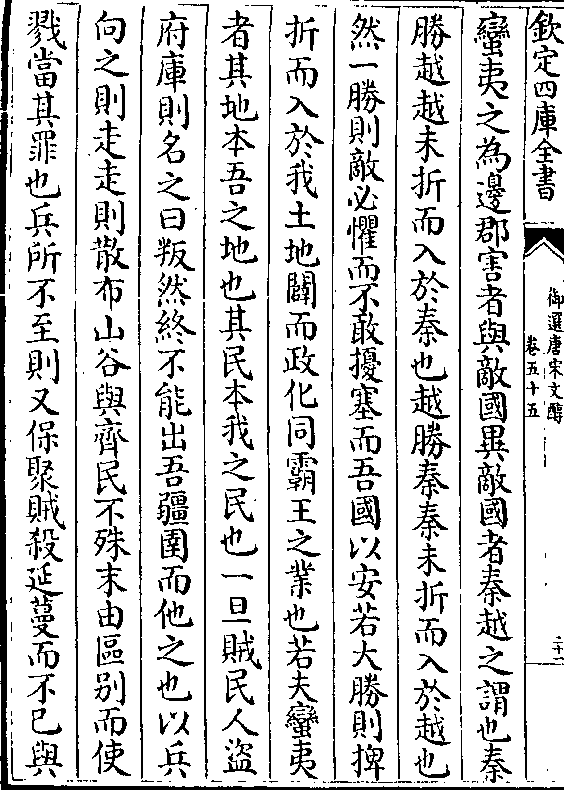 欽定四庫全書
御選唐宋文醇
卷五十五
二十一
蠻夷之為邊郡害者與敵國異敵國者秦越之謂也秦
勝越越未折而入於秦也越勝秦秦未折而入於越也
然一勝則敵必懼而不敢擾塞而吾國以安若大勝則捭
折而入於我土地闢而政化同霸王之業也若夫蠻夷
者其地本吾之地也其民本我之民也一旦賊民人盜
府庫則名之曰叛然終不能出吾疆圉而他之也以兵
向之則走走則散布山谷與齊民不殊末由區别而使
戮當其罪也兵所不至則又保聚賊殺延蔓而不已與